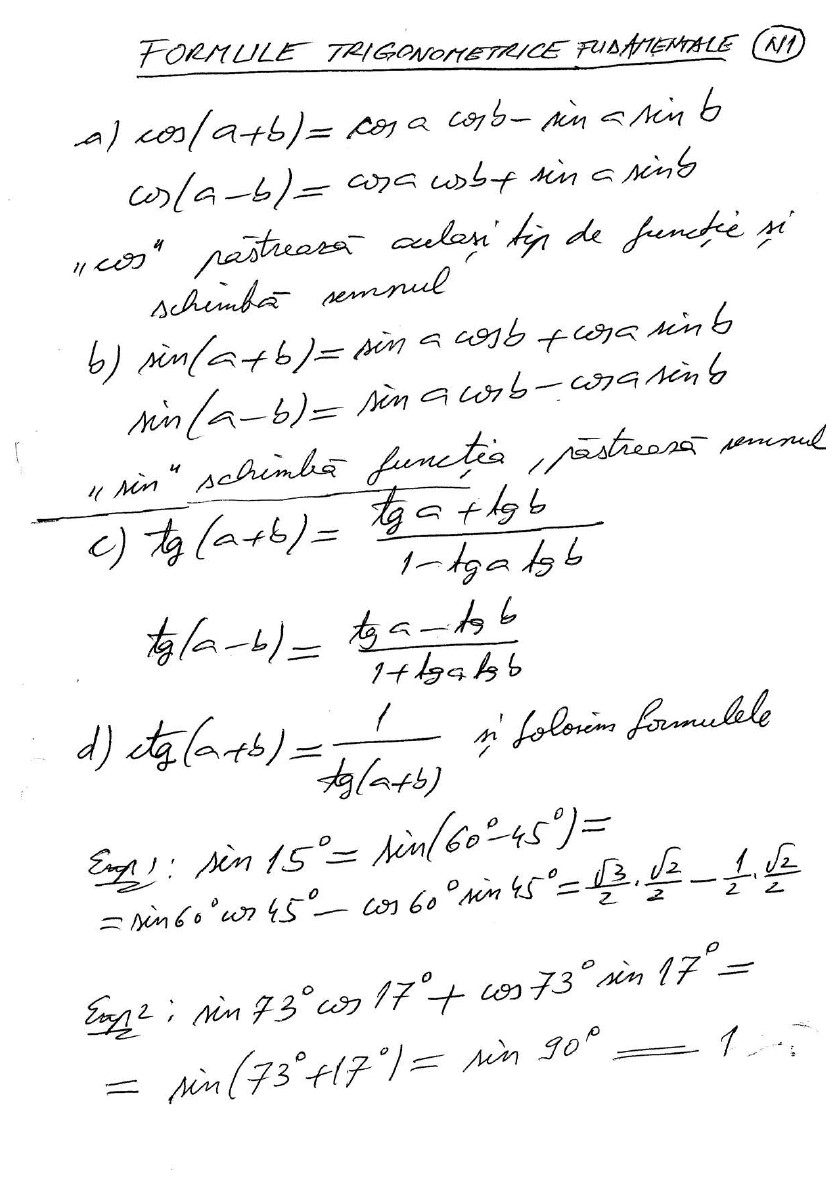 FORMULE TRIGONOMETRICE FUDAMENTALE N1
a) cos(a+b)= cos a cosb - sin a sin b
cos(a-b)= cosa cosb+ sin a sinb
„cos" păstrează același tip de funcție și
schimbă semnul
b) sin(a+b)= sin a cosb + cosa sin b
sin(a-b)= sin a cosb - cosa sinb
„sin" schimbă funcția, păstrează semnul
c) tg(a+b)= \frac{tg a + tg b}{1 - tg a tg b}
tg(a-b)= \frac{tg a - tg b}{1+tga tg b}
d) ctg(a+b)= \frac{1}{tg(a+b)} și folosim formulele
Exp 1: sin 15°= sin(60°-45°)=
= sin60° cos 45° - cos 60° sin 45° = \frac{√3}{2} · \frac{√2}{2} - \frac{1}{2} · \frac{√2}{2}
Exp 2: sin 73° cos 17° + cos 73° sin 17° =
= sin(73°+17°)= sin 90° = 1